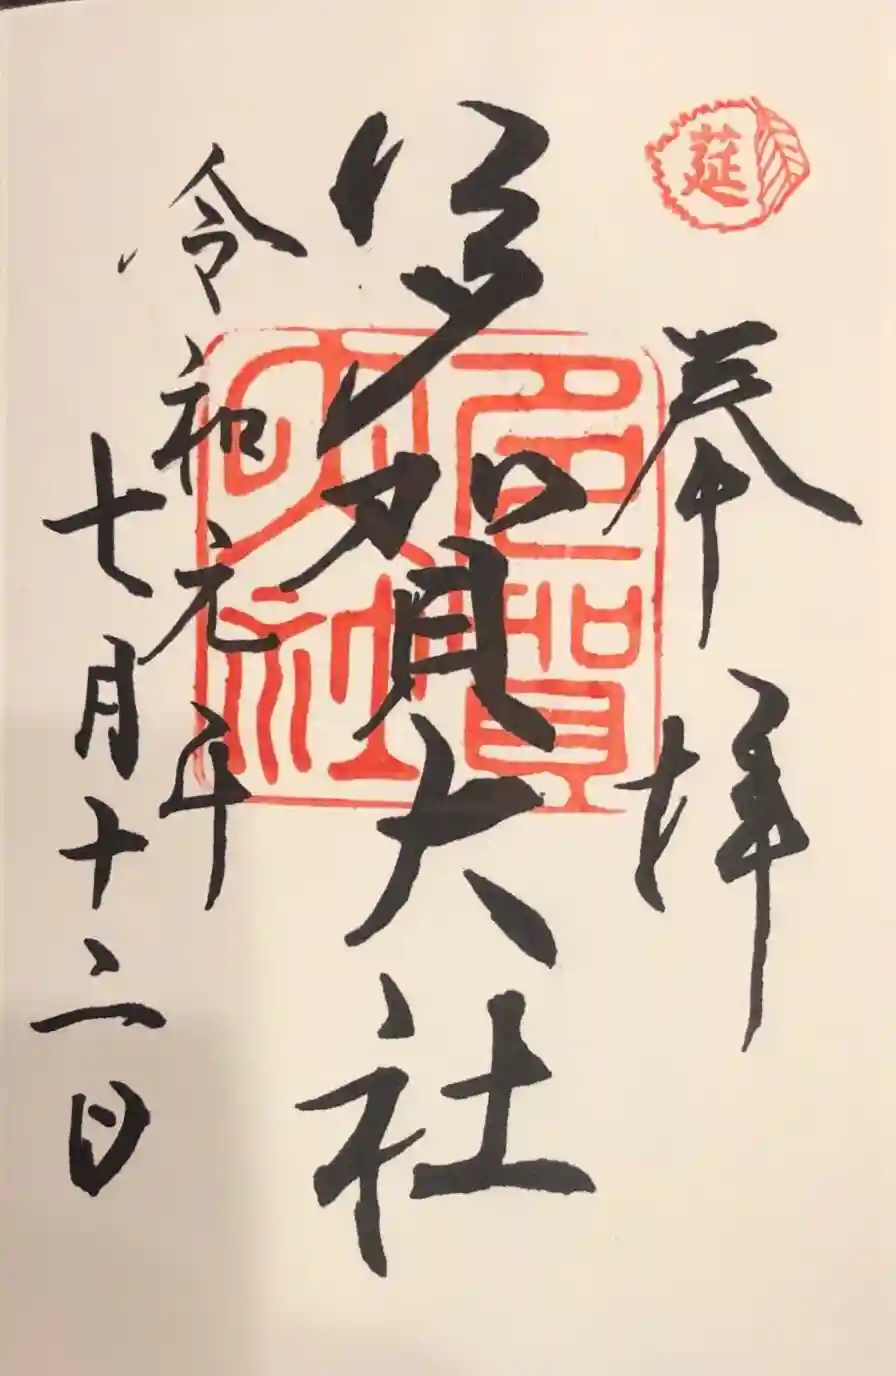 莚
奉拝
多賀大社
多賀
大社
令和元年
七月十二日